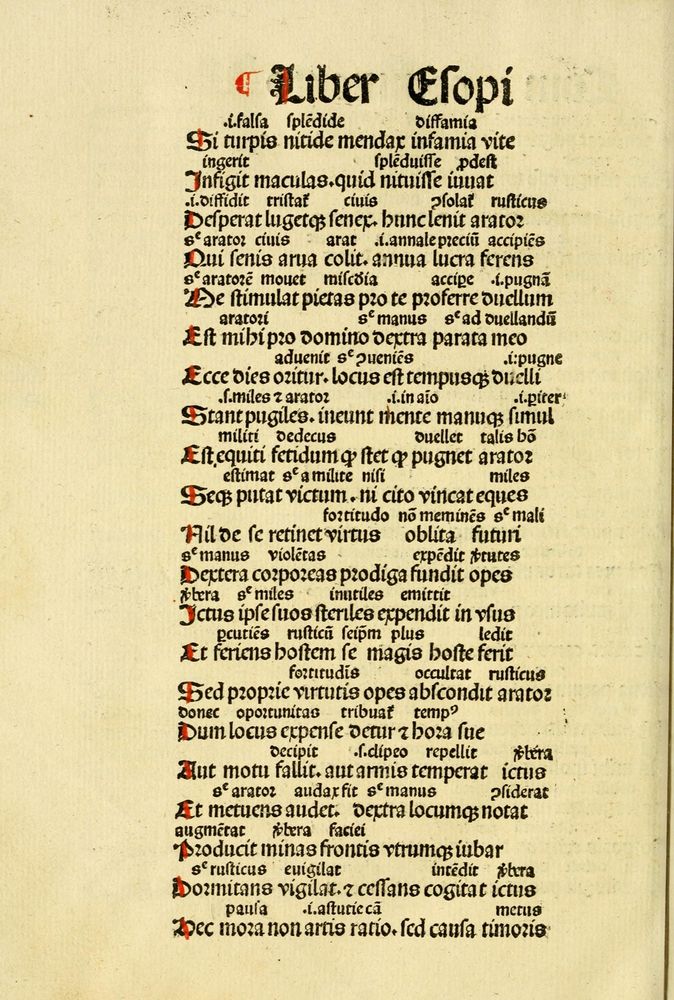 ¶ Liber Esopi
.i.falsa splẽdide diffamia
Si turpis nitide mendax infamia vite
ingerit splẽduisse ꝓdest
Infigit maculas. quid nituisse iuuat
.i.diffidit tristať ciuis ꝯsolať rusticus
Desperat lugetqꝫ senex. hunc lenit arator
sᵉ arator ciuis arat .i.annale preciũ accipiẽs
Qui senis arua colit. annua lucra ferens
sᵉ aratorẽ mouet accipe .i.pugnã
Me stimulat pietas pro te proferre duellum
aratori sᵉ manus sᵉ ad duellandũ
Est mihi pro domino dextra parata meo
aduenit sᵉ ꝯueniẽs .i:pugne
Ecce dies oritur. locus est tempusqꝫ duelli
.s.miles ⁊ arator .i.in aĩo .i.ꝑiter
Stant pugiles. ineunt mente manuqꝫ simul
militi dedecus duellet talis hõ
Est equiti fetidum ꝙ stet ꝙ pugnet arator
estimat sᵉ a milite nisi miles
Seqꝫ putat victum. ni cito vincat eques
fortitudo nõ meminẽs sᵉ mali
Nil de se retinet virtus oblita futuri
sᵉ manus violẽtas expẽdit
Dextera corporeas prodiga fundit opes
sᵉ miles inutiles emittit
Ictus ipse suos steriles expendit in vsus
ꝑcutiẽs rusticũ seip̃m plus ledit
Et feriens hostem se magis hoste ferit
fortitudĩs occultat rusticus
Sed proprie virtutis opes abscondit arator
donec oportunitas tribuať tempꝰ
Dum locus expense detur ⁊ hora sue
decipit .s.clipeo repellit
Aut motu fallit. aut armis temperat ictus
sᵉ arator audax fit sᵉ manus ꝯsiderat
Et metuens audet. dextra locumqꝫ notat
augmẽtat faciei
Producit minas frontis vtrumqꝫ iubar
sᵉ rusticus euigilat intẽdit
Dormitans vigilat. ⁊ cessans cogitat ictus
pausa .i.astutie cã metus
Nec mora non artis ratio. sed causa timoris